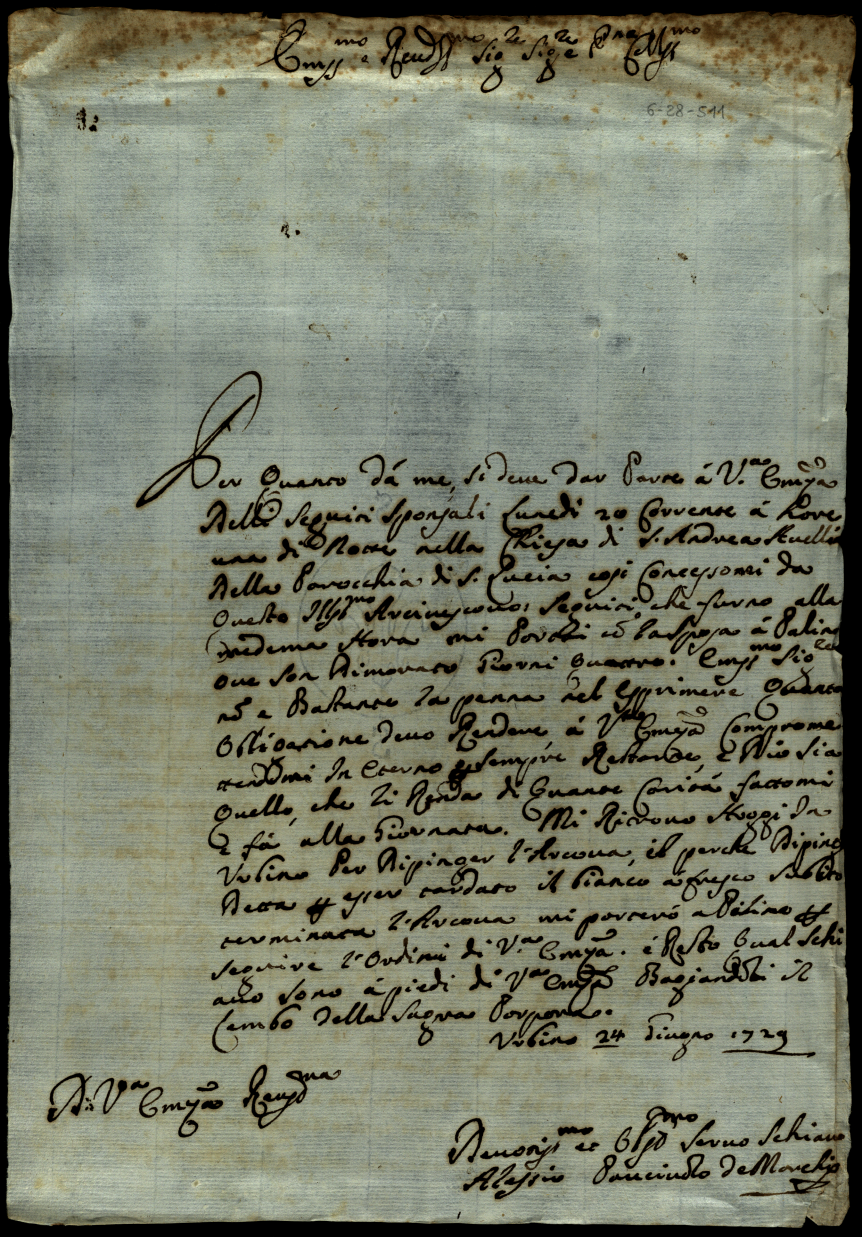 Em:mo e Reud:mo Sig:re Sig:re e Pne
6-28-511
Per Quanto dá me, si deve dar Parte á V.ra Em:za
Delli Seguiti Sponsali Lunedi 20 Corrente á hore
una di Notte nella Chiesa di S. Andrea
Della Parocchia di S. Lucia cosi Concessomi da
Questo Ill:mo Arcivescovo: Seguiti, che furno alla
medema Hora mi Portai cõ la Sposa á
Oue son Dimorato Giorni Quattro. Em:mo Sig:re
nõ e Bastante la penna nel Esprimere Quanta
Obligatione deuo Rendere á V.ra Em:za Comprome
tendomi In Eterno e sempre Restarde, e Dio sia
Quello, che li Renda di Quante Caritá fattomi
e fá alla Giornata. Mi Ritrouo Hoggi In
Vrbino Per Dipinger l'Arcoua, il perche Dipinta
Detta esser tardato il bianco á fresco Subbito
terminata l'Arcoua mi porteró a
seguire l'Ordini di V.ra Em:za. é Resto Qual Schi
auo sono á piedi di V.ra Em:za Bagiandoli il
Lembo della Sagra Porpora.
Vrbino 24 Giugno 1729
Di V.ra Em:za Reu:ma
Deuotis:mo et Obl:mo Seruo Schiauo
Alessio de Marchis